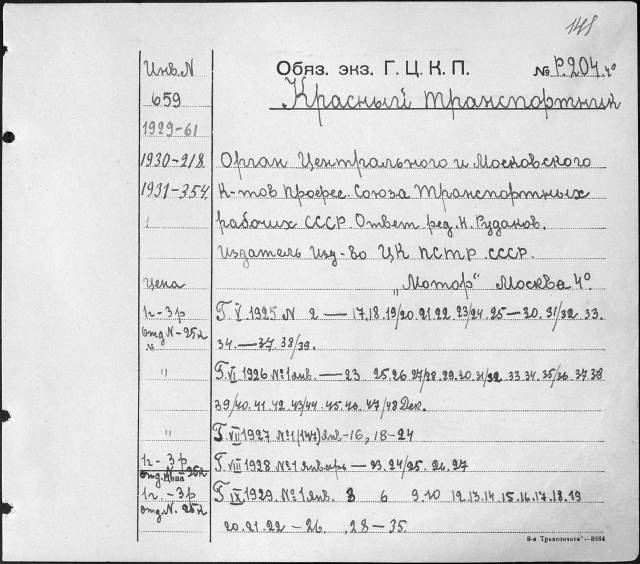 148
Инв. N Обяз. экз. Г. Ц. К. П. № Р.204. 4º
659 Красный транспортник
1929-61
1930-218. Орган Центрального и Московского
1931-354. К-тов Профес. Союза Транспортных
рабочих СССР. Ответ. ред. Н. Руданов.
Издатель Изд-во ЦК ПСТР СССР.
Цена „Мотор" Москва 4º
1г-3р Г. V 1925 N 2 — 17.18.19/20.21.22.23/24.25—30.31/32.33.
отд. N-25к 34.—37.38/39.
" Г. VI 1926 №1 янв. — 23 25.26 27/28.29.30.31/32 33 34. 35/36.37.38
39/40.41.42.43/44.45.46.47/48 Дек.
" Г. VII 1927 №1(147) янв-16, 18-24
1г-3р Г. VIII 1928 №1 январь — 23.24/25.26.27
отд. 25к
1г.-3р Г. IX 1929 №1 янв. 3 6 9.10 12.13.14.15.16.17.18.19
отд. N. 25к 20.21.22 — 26. ,28 — 35.
8-я Транспечати"—8884